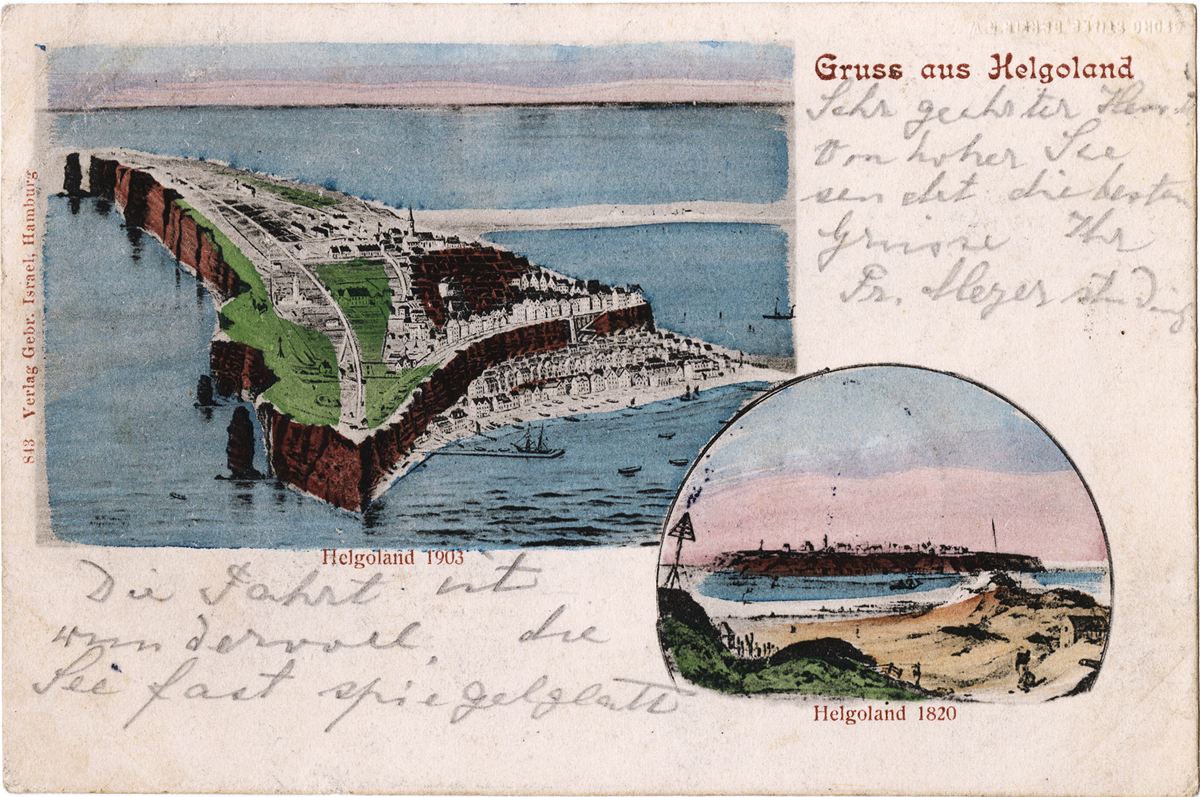 Gruss aus Helgoland
Sehr geehrter Herr
Von hoher See
sendet die besten
Grüsse Ihr
Fr. Meyer
843 Verlag Gebr. Israel, Hamburg
Helgoland 1903
Die Fahrt ist
wundervoll, die
See fast spiegelglatt
Helgoland 1820